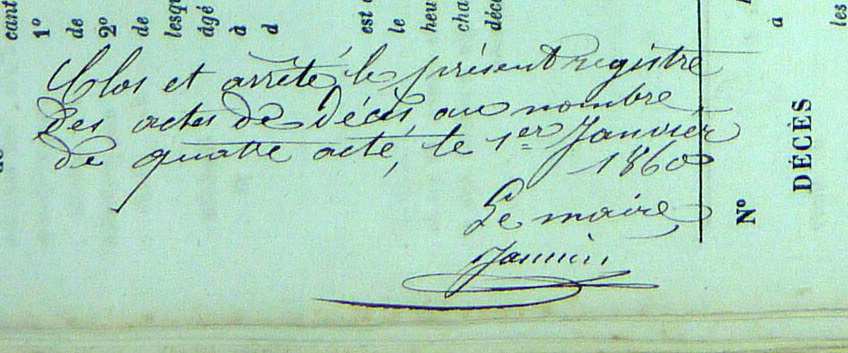 cant
1º
de
2º
de
lesqu
âgé
à
d
est d
le
heu
cha
décé
Clos et arrêté le présent registre
des actes de Décès, au nombre
de quatre acte, le 1er Janvier
1860
Le maire
Jannin
Nº
DÉCÈS
à
les